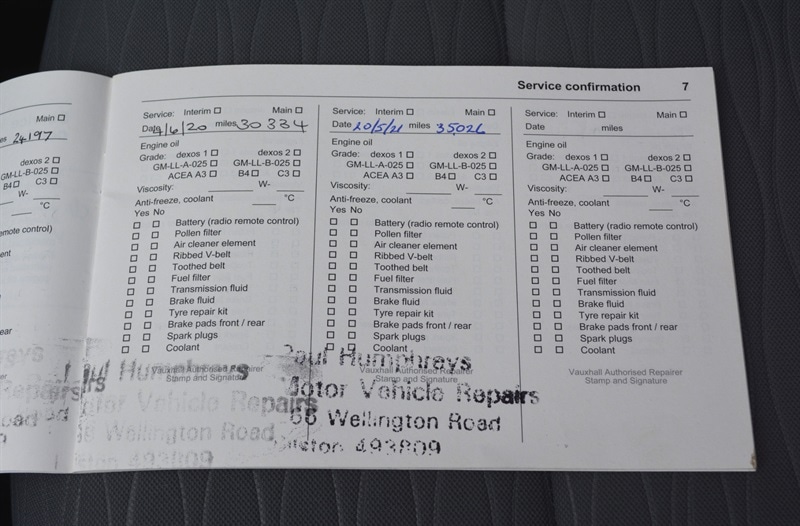 Service confirmation 7
Main
24197
dexos 2
GM-LL-B-025
B4 C3
W-
°C
emote control)
ent
ear
Service: Interim Main
Date 4/6/20 miles 30334
Engine oil
Grade: dexos 1 dexos 2
GM-LL-A-025 GM-LL-B-025
ACEA A3 B4 C3
Viscosity: W-
Anti-freeze, coolant °C
Yes No
Battery (radio remote control)
Pollen filter
Air cleaner element
Ribbed V-belt
Toothed belt
Fuel filter
Transmission fluid
Brake fluid
Tyre repair kit
Brake pads front / rear
Spark plugs
Coolant
Vauxhall Authorised Repairer
Stamp and Signature
Humphreys
Vehicle Repairs
Wellington Road
493809
Service: Interim Main
Date 20/5/21 miles 35026
Engine oil
Grade: dexos 1 dexos 2
GM-LL-A-025 GM-LL-B-025
ACEA A3 B4 C3
Viscosity: W-
Anti-freeze, coolant °C
Yes No
Battery (radio remote control)
Pollen filter
Air cleaner element
Ribbed V-belt
Toothed belt
Fuel filter
Transmission fluid
Brake fluid
Tyre repair kit
Brake pads front / rear
Spark plugs
Coolant
Vauxhall Authorised Repairer
Stamp and Signature
Paul Humphreys
Motor Vehicle Repairs
Wellington Road
493809
Service: Interim Main
Date miles
Engine oil
Grade: dexos 1 dexos 2
GM-LL-A-025 GM-LL-B-025
ACEA A3 B4 C3
Viscosity: W-
Anti-freeze, coolant °C
Yes No
Battery (radio remote control)
Pollen filter
Air cleaner element
Ribbed V-belt
Toothed belt
Fuel filter
Transmission fluid
Brake fluid
Tyre repair kit
Brake pads front / rear
Spark plugs
Coolant
Vauxhall Authorised Repairer
Stamp and Signature